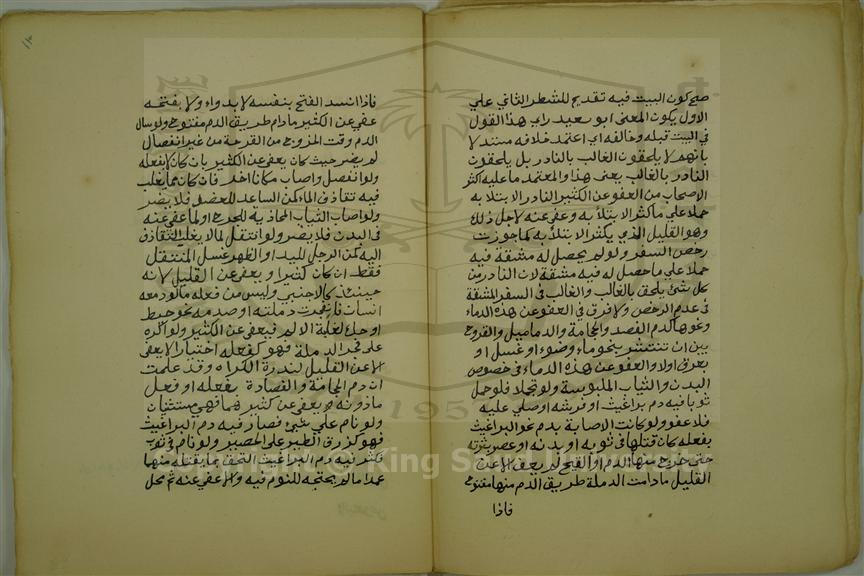 صح كون البيت فيه تقديم للشطر الثاني علي
الاول يكون المعنى ابو سعيد راي هذا القول
في البيت قبله وخالفه اي اعتمد خلافه مستند لا
بانهم لا يلحقون الغالب بالنادر بل يلحقون
النادر بالغالب يعنى هذا والمعتمد ما عليه اكثر
الاصحاب من العفو عن الكثير النادر الابتلا به
حملا علي ما كثر الابتلا به وعفي عنه لاجل ذلك
وهو القليل الذي يكثر الابتلا به كما جوزت
رخص السفر ولو لم يحصل له مشقة فيه
حملا علي ما حصل له فيه مشقة لان النادر من
كل شئ يلحق بالغالب والغالب في السفر المشقة
في عدم الرخص ولا فرق في العفو عن هذه الدماء
ونحوها كدم الفصد والحجامة والدماميل والقروح
بين ان تنتشر بنحو ماء وضوء او غسل او
بعرق اولا والعفو عن هذه الدماء في خصوص
البدن والثياب الملبوسة ولو تجملا فلو حمل
ثوبا فيه دم براغيث او فرشه او صلي عليه
فلا عفو ولو كانت الاصابة بدم نحو البراغيث
بفعله كان قتلها في ثوبه او بدنه او عصر بثرته
حتى خرج منها الدم او القيح لم يعف الا عن
القليل ما دامت الدملة طريق الدم منها مفتوح
فاذا
١٣
فاذا انسد الفتح بنفسه لا بدواء ولا بفتحه
عفي عن الكثير ما دام طريق الدم مفتوح ولو سال
الدم وقت الخروج من القرحة من غير انفصال
لم يضر حيث كان يعفى عن الكثير بان كان لا بفعله
ولو انفصل واصاب مكانا اخر فان كان مما يغلب
فيه تقاذف الماء كمن الساعد للعضد فلا يضر
ولو اصاب الثياب المحاذية للجرح او لما عفي عنه
في البدن فلا يضر ولو انتقل لما لا يغلب التقاذف
اليه كمن الرجل لليد او الظهر غسل المنتقل
فقط ان كان كثيرا ويعفي عن القليل لانه
حينئذ كالاجنبي وليس من فعله ما لو دمعه
انسان فانفجرت دملته او صدمه نحو حيط
او حك لغلبة الالم فيعفي عن الكثير ولو اكره
على فجر الدملة فهو كفعله اختيارا لا يعفى
الا عن القليل لندرة الاكراه وقد علمت
ان دم الحجامة والفصادة بفعله او فعل
ماذونه يعفى عن كثيرهما فهي مستثنيان
ولو نام علي شئ فصار فيه دم البراغيث
فهو كزرق الطير علي الحصير ولو نام في ثوب
فكثر فيه دم البراغيث التحق بما يقتله منها
عمدا ما لم يحتجه للنوم فيه والا عفي عنه ثم محل
Copyright © King Saud University
1957